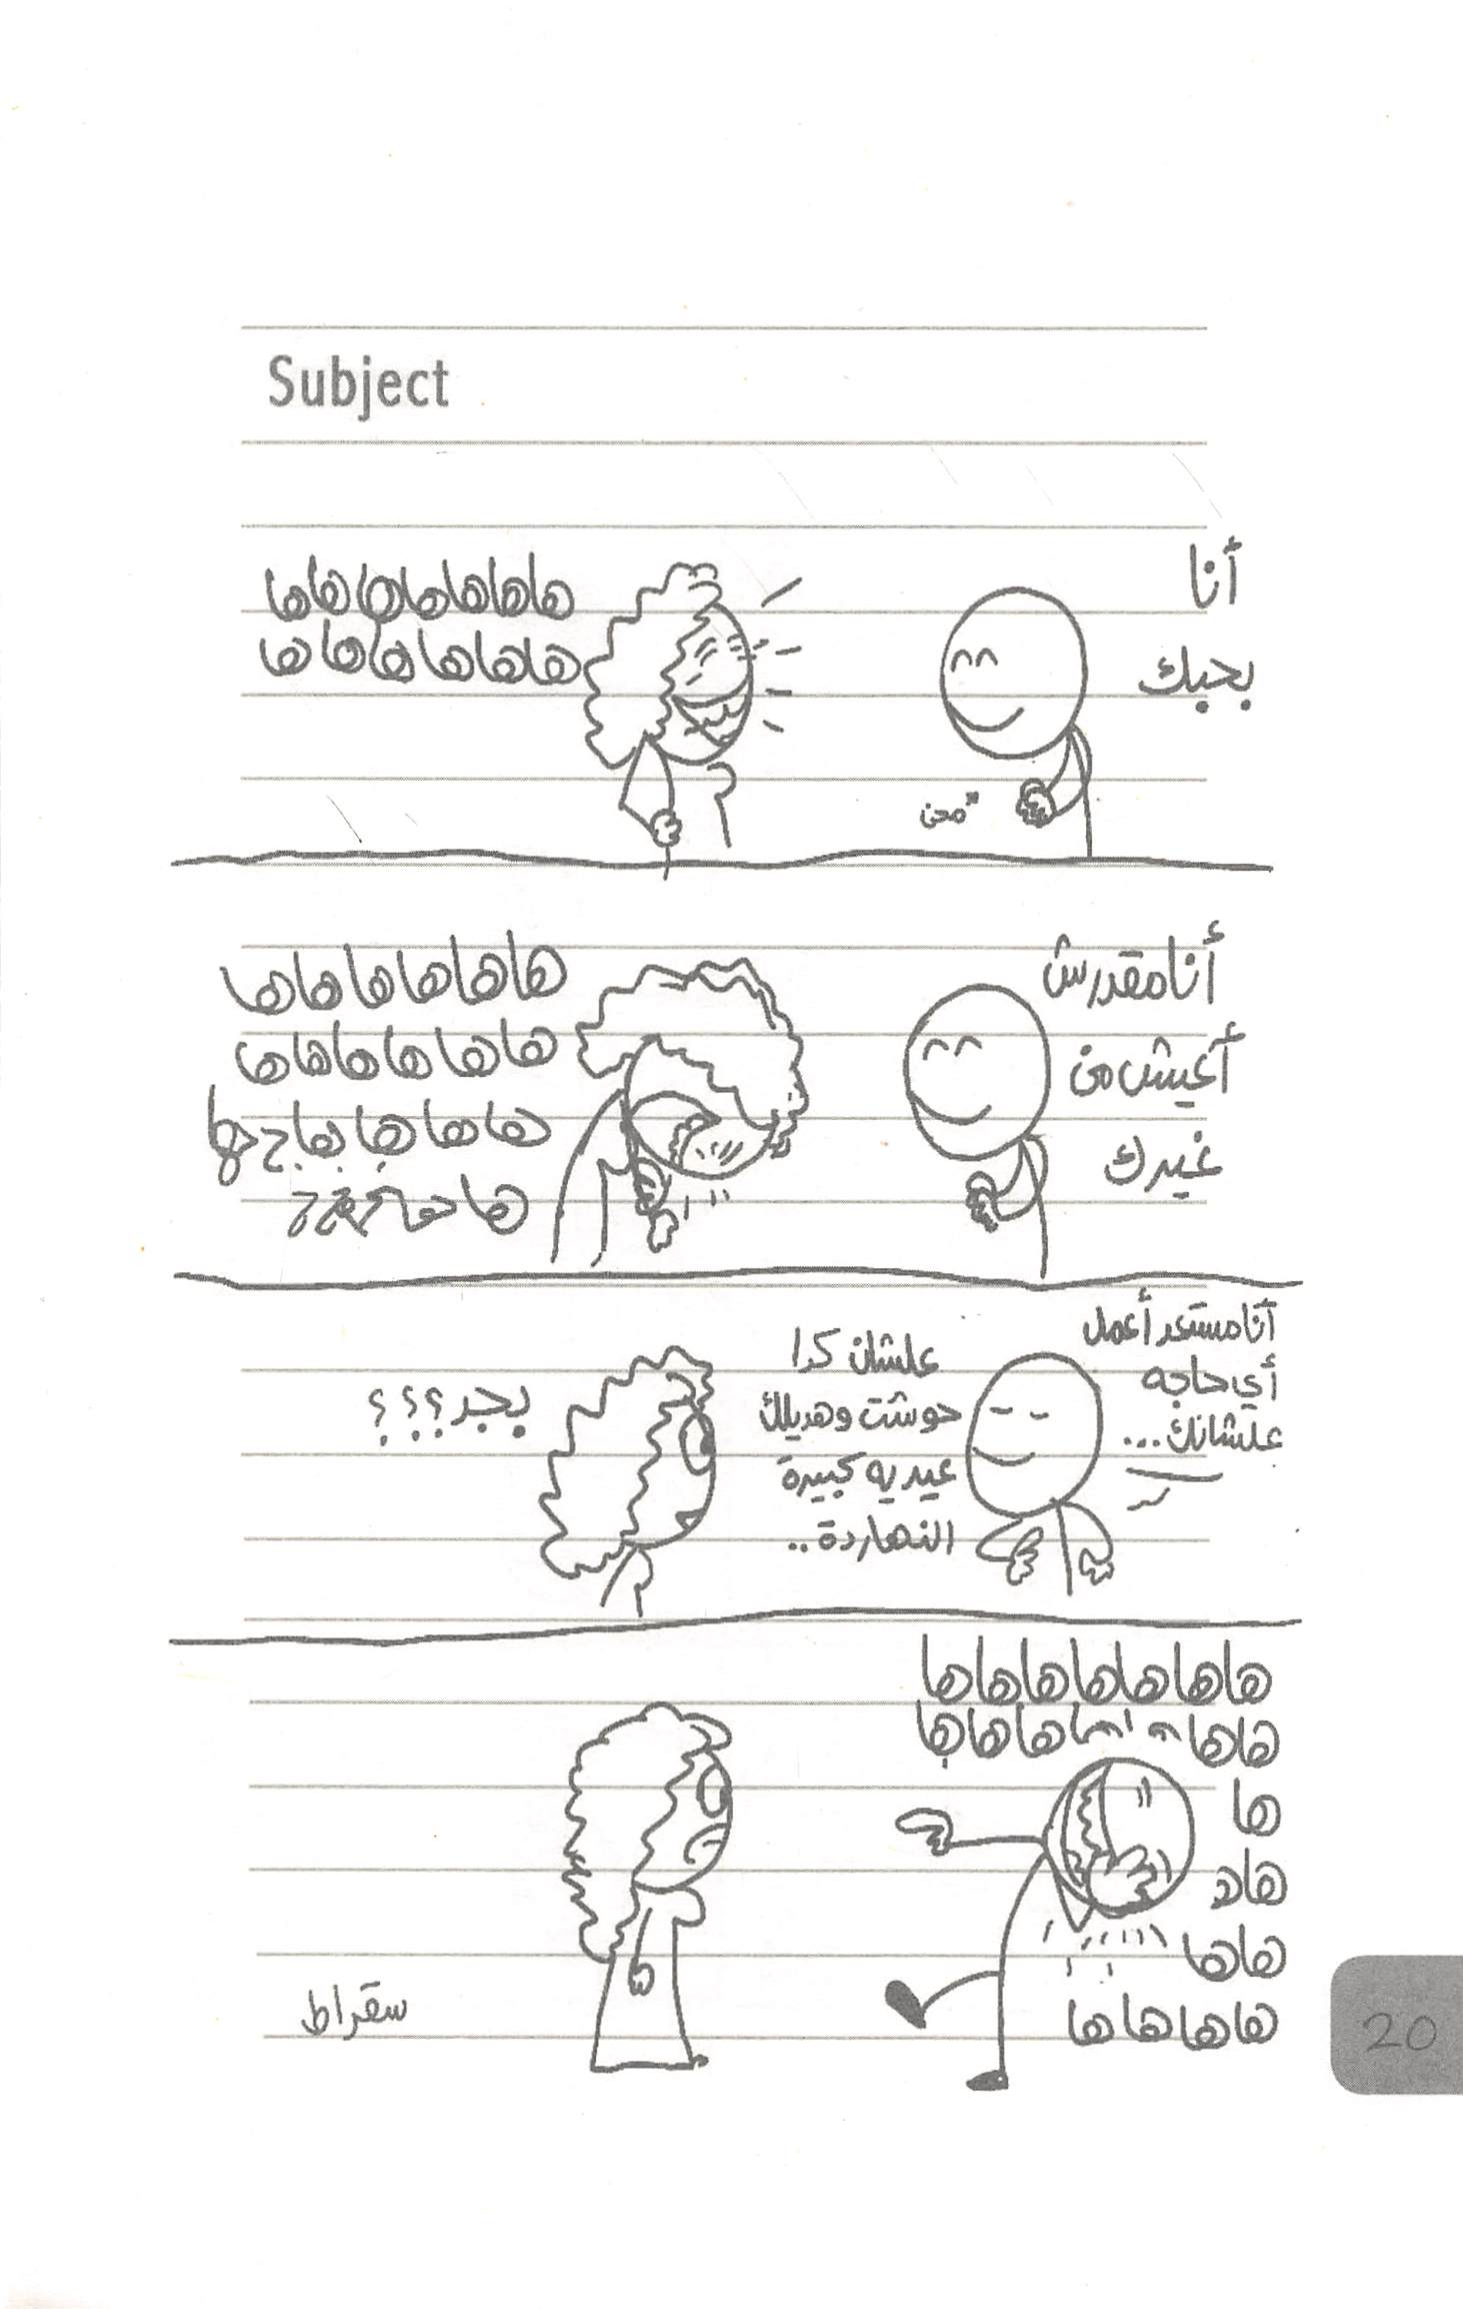 Subject
أنا
بحبك
*محن
هاهاهاهاهاهاها
هاهاهاهاهاهاها
أنا مقدرش
أعيش من
غيرك
هاهاهاهاهاهاها
هاهاهاهاهاها
أنا مستعد أعمل
أي حاجه
علشانك...
علشان كدا
حوشت وهديلك
عيديه كبيرة
النهاردة..
بجد؟؟؟
هاهاهاهاهاهاها
ها
هاها
هاهاهاها
سقراط
20